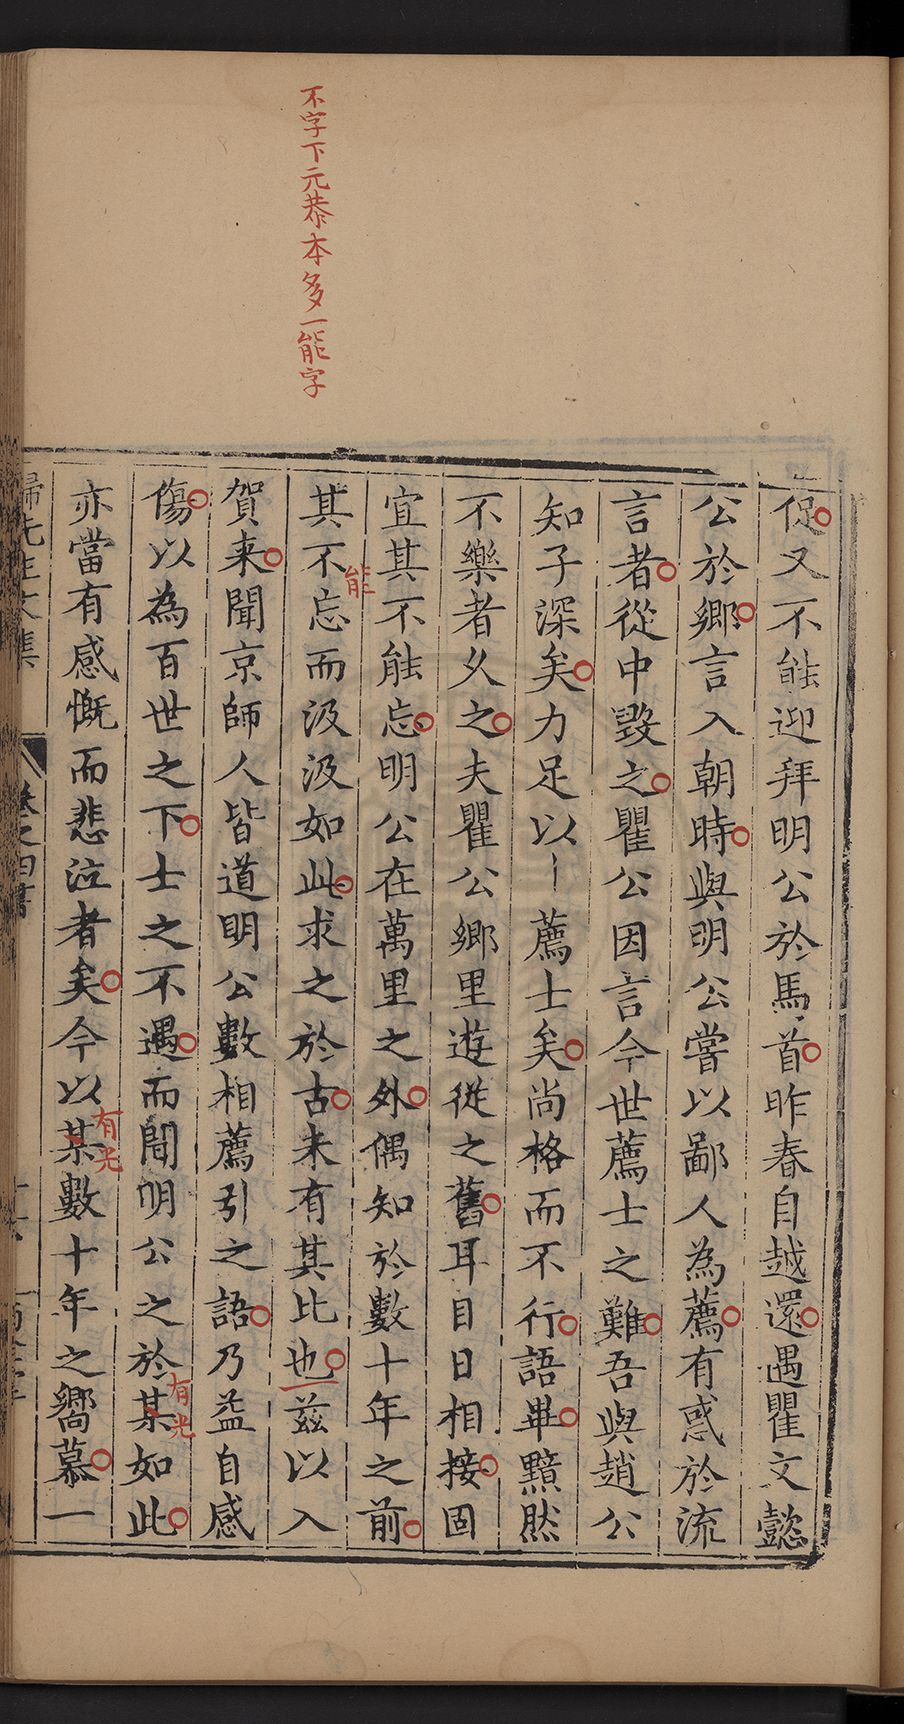 不字下元恭本多一能字
促又不能迎拜明公於馬首昨春自越還遇瞿文懿
公於鄉言入朝時與明公嘗以鄙人為薦有惑於流
言者從中毀之瞿公因言今世薦士之難吾與趙公
知子深矣力足以薦士矣尚格而不行語畢黯然
不樂者久之夫瞿公鄉里遊從之舊耳目日相接固
宜其不能忘明公在萬里之外偶知於數十年之前
其不忘而汲汲如此求之於古未有其比也茲以入
能
賀来聞京師人皆道明公數相薦引之語乃益自感
傷以為百世之下士之不遇而聞明公之於某如此
有光
亦當有感慨而悲泣者矣今以某數十年之嚮慕一
有光
歸先生文集 卷之四書